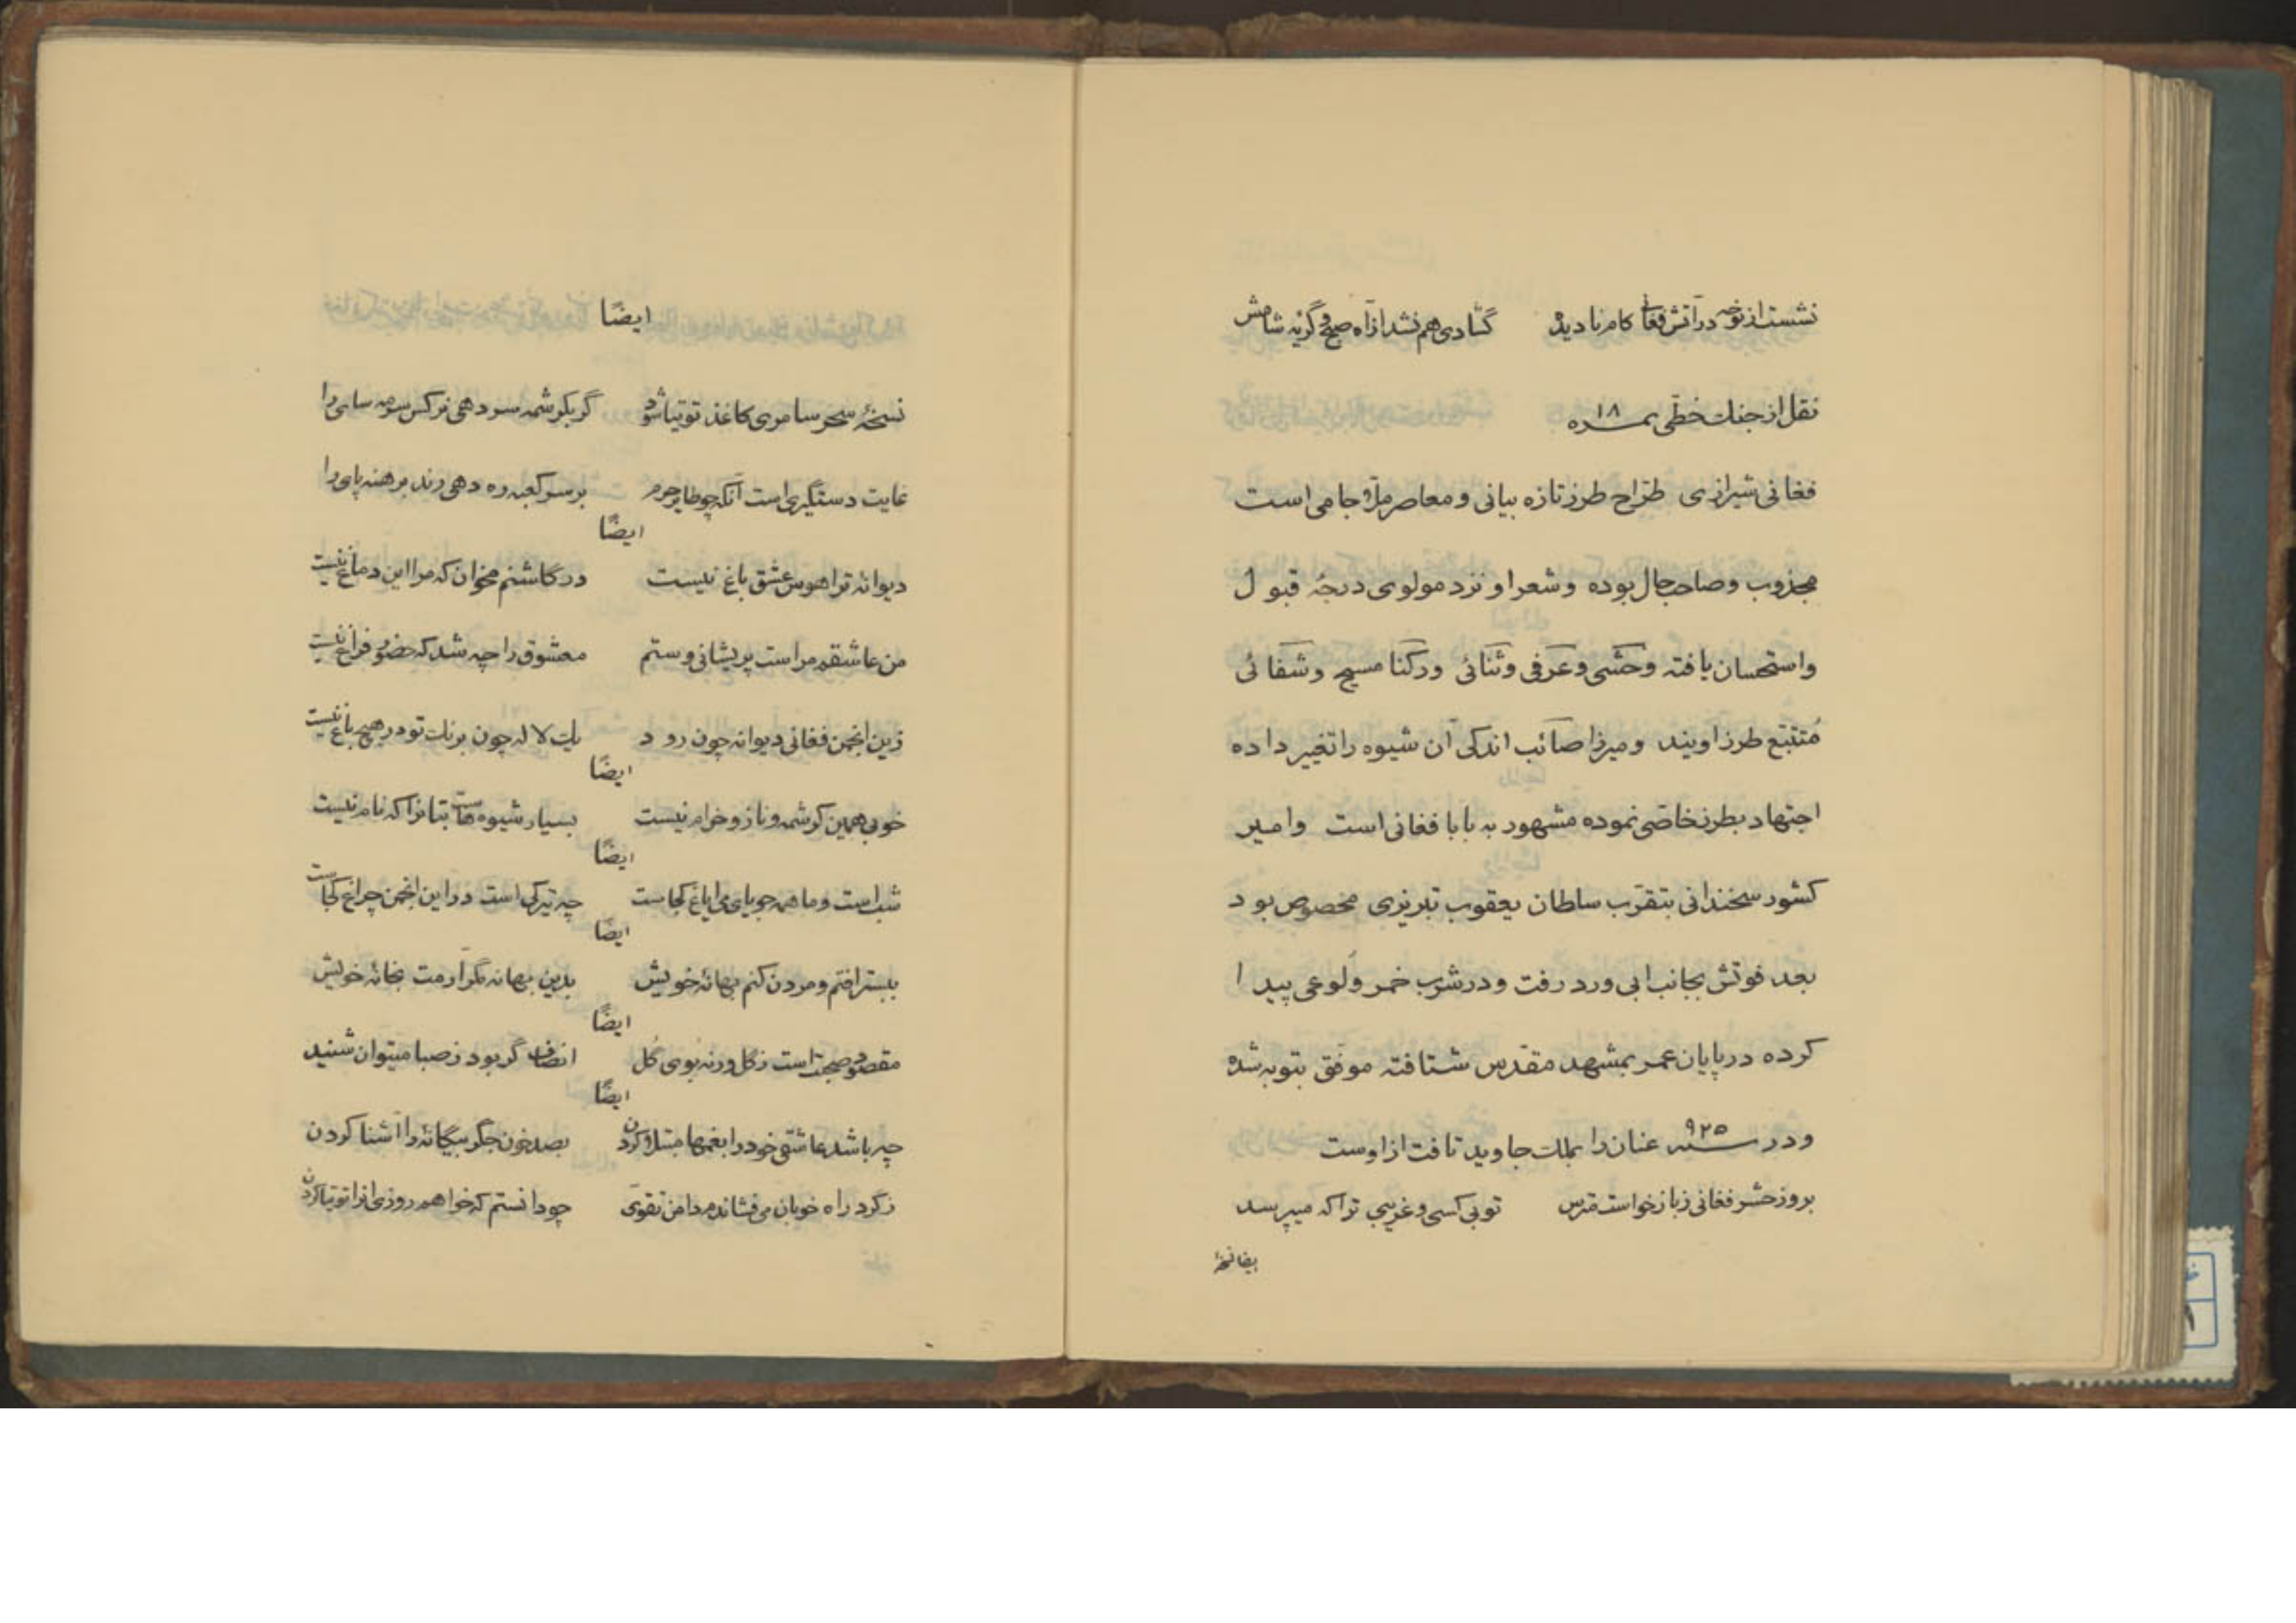 نشست از نوحه در آتش فغانی کام نادیده گشادی هم نشد از آه صبح و گریه شامش
نقل از جنك خطّی نمره ۱۸
فغانی شیرازی طرّاح طرز تازه بیانی و معاصر ملّا جامی است
مجذوب و صاحب حال بوده و شعر او نزد مولوی درجهٔ قبول
و استحسان یافته وحشی و عرفی و ثنائی و رکنا مسیح و شفائی
مُتتبّع طرز اویند و میرزا صائب اندکی آن شیوه را تغییر داده
اجتهاد بطرز خاصّی نموده مشهور به بابا فغانی است و امیر
کشور سخندانی بتقرّب سلطان یعقوب تبریزی مخصوص بود
بعد فوتش بجانب ابی ورد رفت و در شرب خمر وَلوعی پیدا
کرده در پایان عمر بمشهد مقدّس شتافته موفّق بتوبه شده
و در سنه ۹۲۵ عنان را بملك جاوید تافت از اوست
بروز حشر فغانی ز بازخواست مترس تو بی کسی و غریبی ترا که میپرسد
ایضا نسخهٔ
ایضًا
نسخهٔ سحر سامری کاغذ توتیا شود گر بکرشمه سر دهی نرکس سرمه سای را
غایت دستگیری است آنکه چو طایر حرم بر سر کعبه ره دهی رند برهنه پای را
ایضًا
دیوانهٔ ترا هوس عشق باغ نیست در گلشنم مخوان که مرا این دماغ نیست
من عاشقم مراست پریشانی و ستم معشوق را چه شد که حضور فراغ نیست
زین انجمن فغانی دیوانه چون رود یك لاله چون برنك تو در هیچ باغ نیست
ایضًا
خوبی همین کرشمه و ناز و خرام نیست بسیار شیوه هاست بتانرا که نام نیست
ایضًا
شب است و ما همه جویای می ایاغ کجاست چه تیرگی است در این انجمن چراغ کجاست
ایضًا
ببستر افتم و مردن کنم بهانهٔ خویش بدین بهانه مگر آرمت بخانهٔ خویش
ایضًا
مقصود صحبت است ز گل ورنه بوی گل انصاف گر بود ز صبا میتوان شنید
ایضًا
چه باشد عاشقی خود را بغمها مبتلا کردن بصد خون جگر بیگانهٔ را آشنا کردن
ز گرد راه خوبان می فشاندم دامن تقوی چو دانستم که خواهم روزی انرا توتیا کردن